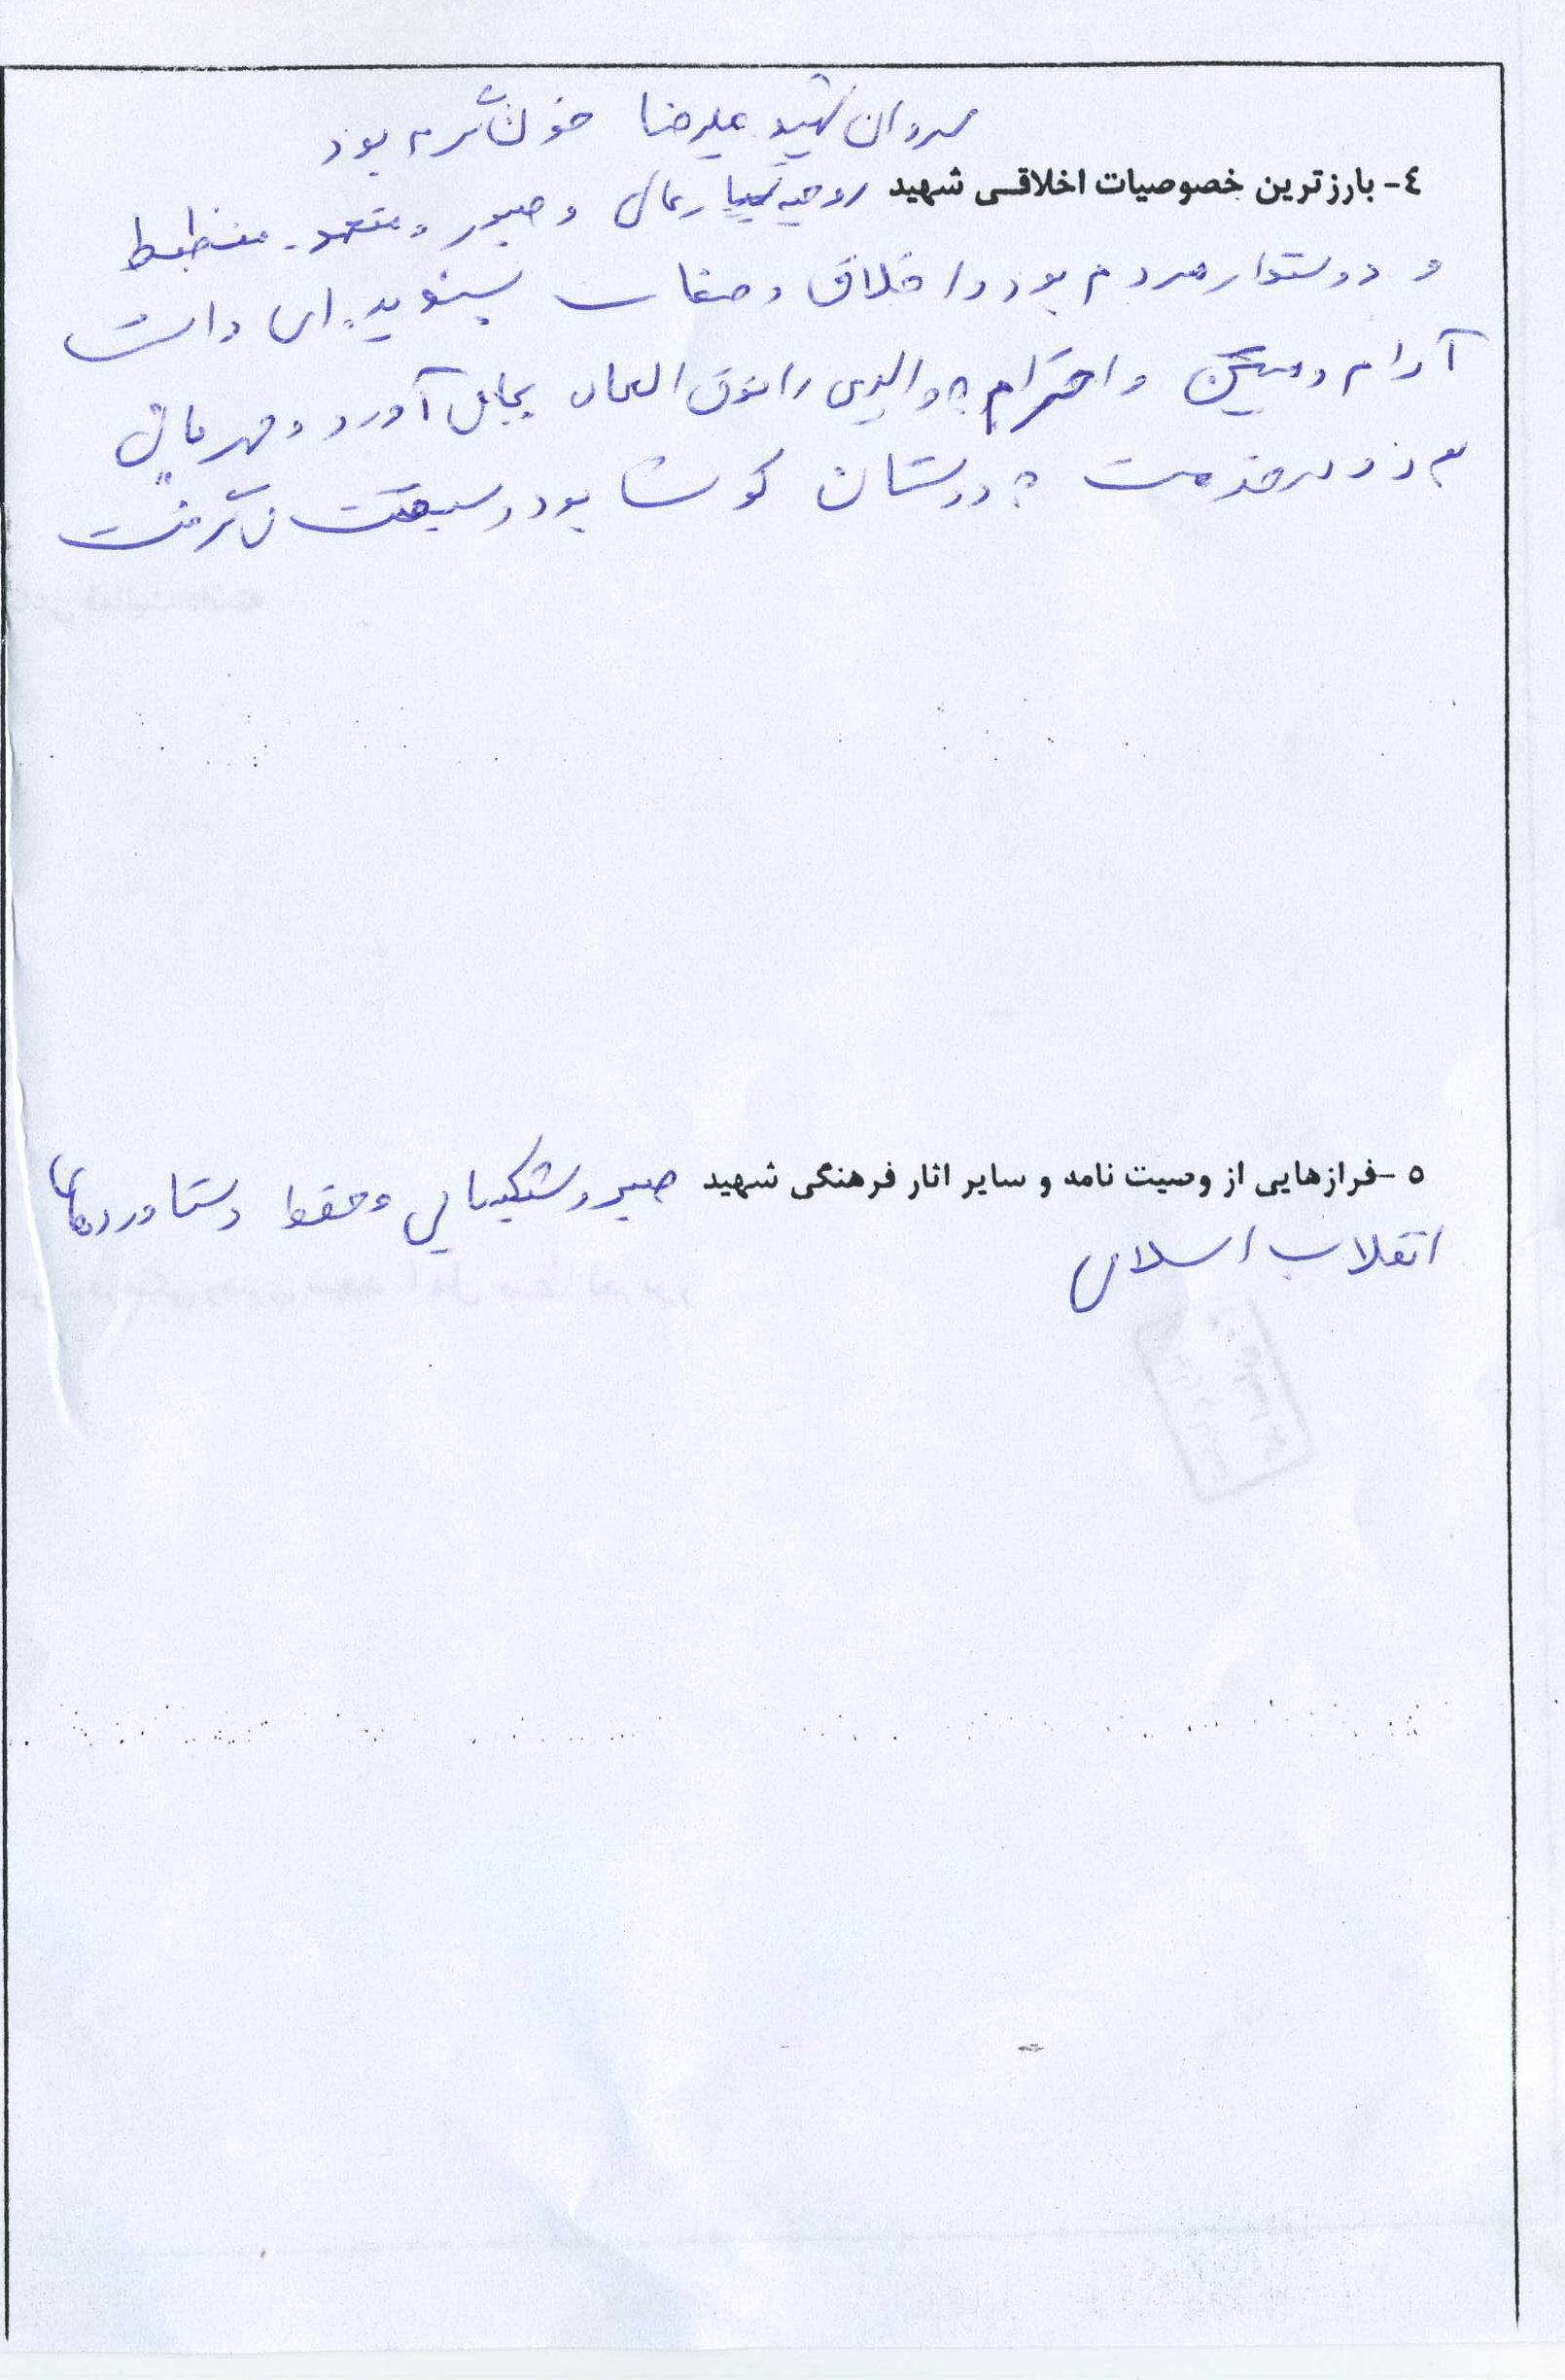 سردار شهید علیرضا خون گرم بود
٤- بارزترین خصوصیات اخلاقی شهید روحیه بسیار عالی و صبور و متعهد منضبط
و دوستدار مردم بود و اخلاق و صفات پسندیده ای داشت
آرام و متین و احترام به والدین را فوق العاده بجای آورد و مهربانی
در خدمت به دوستان کوشا بود و سبقت می گرفت
٥ -فرازهایی از وصیت نامه و سایر اثار فرهنگی شهید صبر و شکیبایی و حفظ دستاوردهای
انقلاب اسلامی